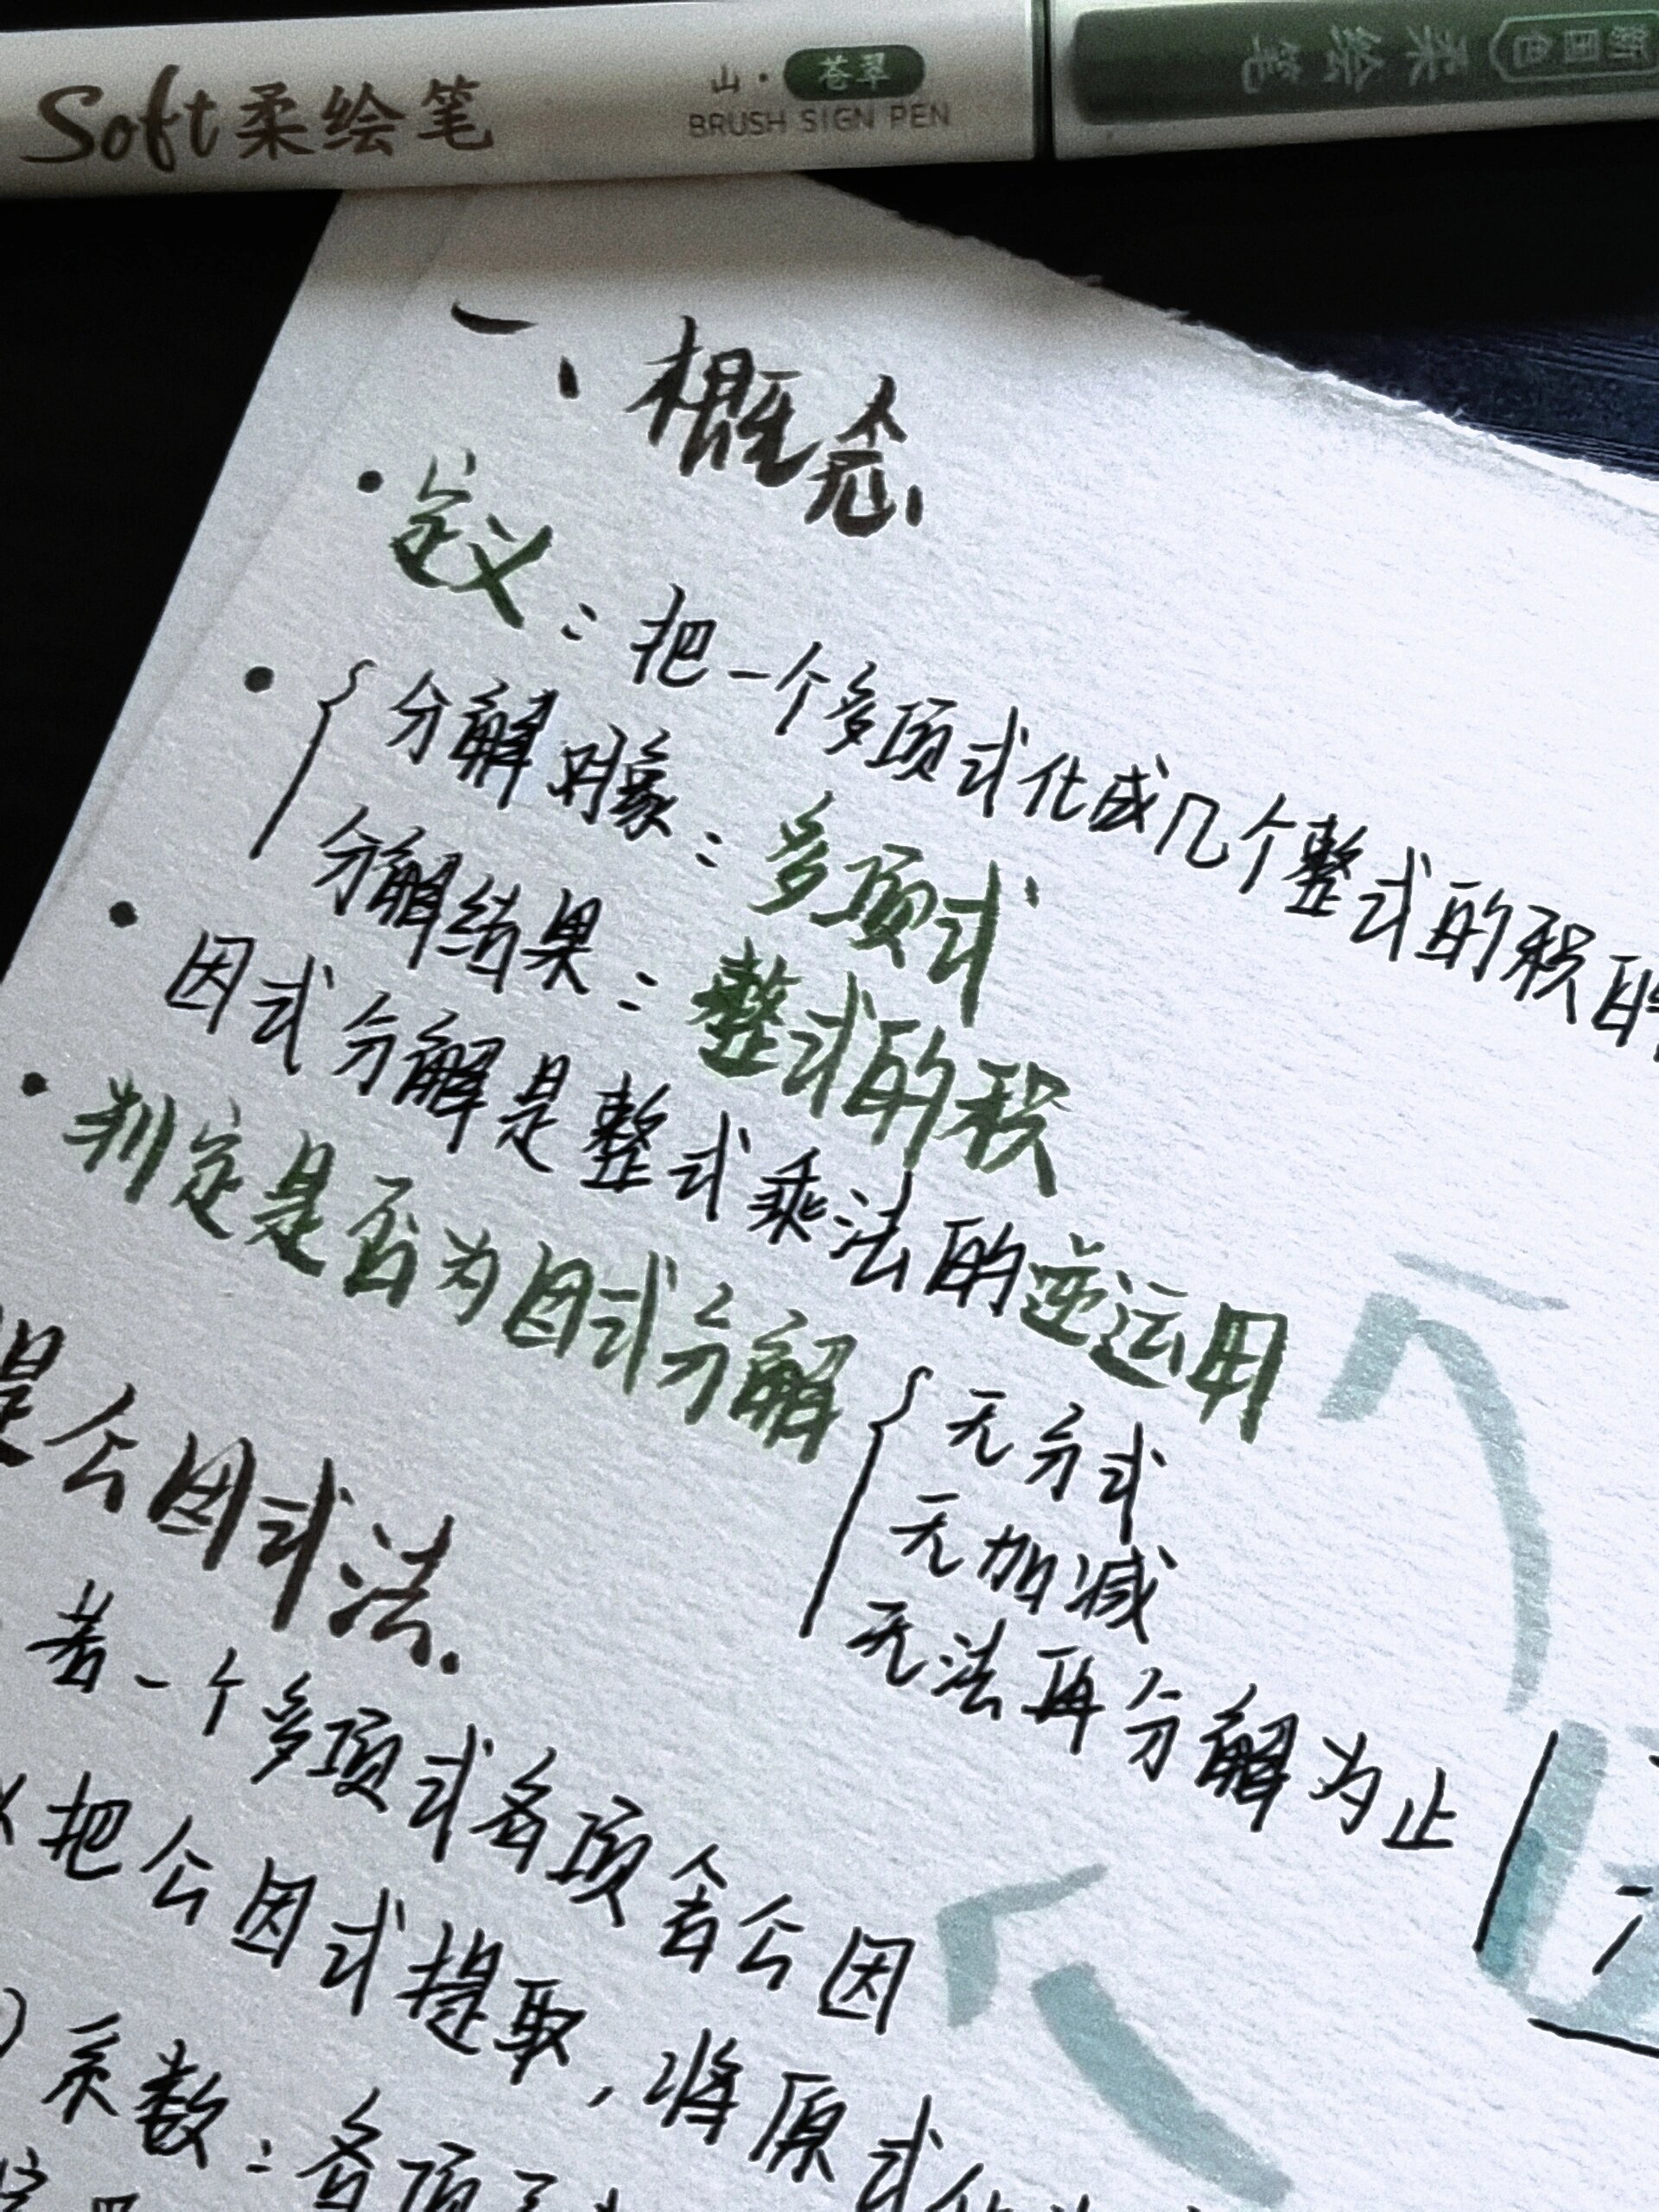 Soft柔绘笔
山·苍翠
BRUSH SIGN PEN
新国色 柔绘笔
一、概念
•定义：把一个多项式化成几个整式的积的
•{分解对象：多项式
分解结果：整式的积
•因式分解是整式乘法的逆运用
•判定是否为因式分解{无分式
无加减
无法再分解为止
提公因式法.
若一个多项式各项含公因
把公因式提取，将原式
系数：各项